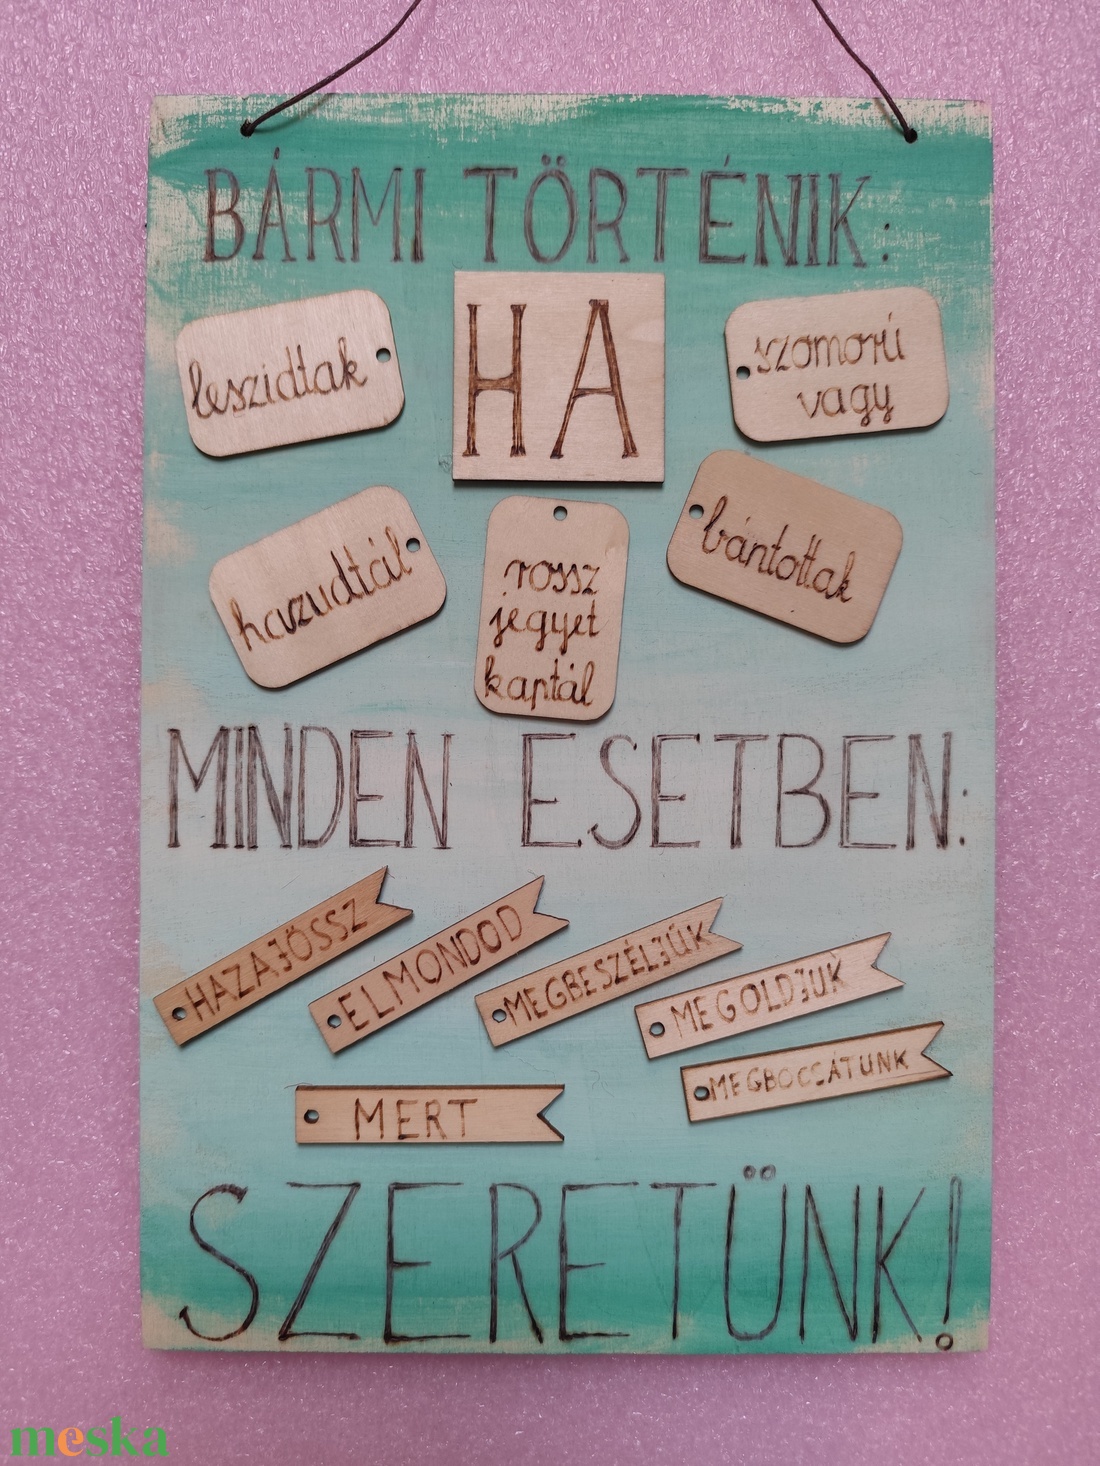 BÁRMI TÖRTÉNIK:
HA
leszidtak
szomorú
vagy
hazudtál
rossz
jegyet
kaptál
bántottak
MINDEN ESETBEN:
HAZAJÖSSZ
ELMONDOD
MEGBESZÉLJÜK
MEGOLDJUK
MEGBOCSÁTUNK
MERT
SZERETÜNK!
meska